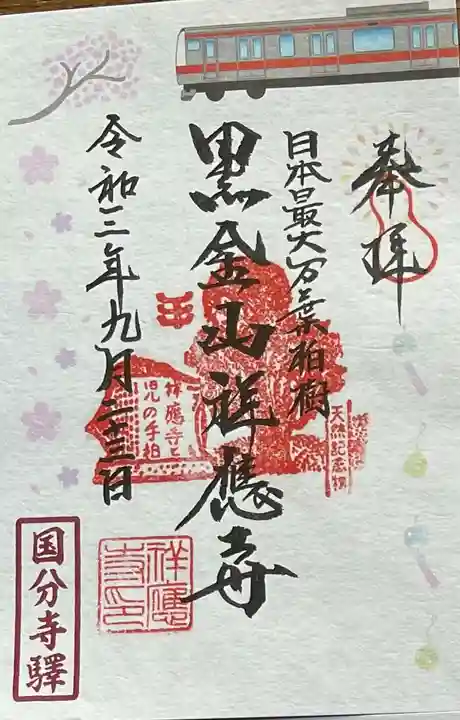 奉拝
日本最大万葉柏樹
黒金山祥應寺
令和三年九月二十三日
天然記念物
祥應寺と
児の手柏
祥應
寺印
国分寺驛